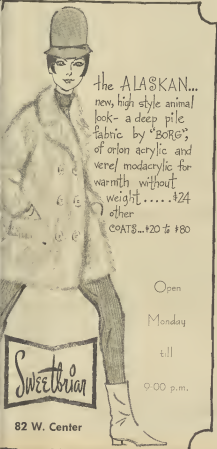 the ALASKAN...
new, high style animal
look- a deep pile
fabric by "BORG",
of orlon acrylic and
verel modacrylic for
warmth without
weight.....$24
other
COATS...$20 to $80
Open
Monday
till
9:00 p.m.
Sweetbriar
82 W. Center